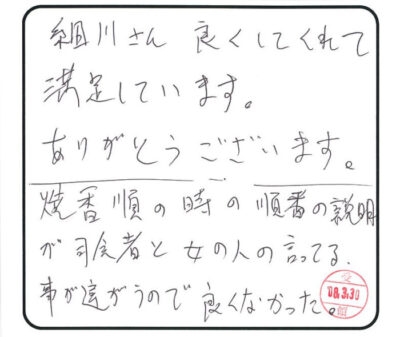 細川さん 良くしてくれて
満足しています。
ありがとうございます。
焼香順の時の順番の説明
が司会者と女の人の言ってる、
事が違がうので良くなかった。
受
08.3.30
領